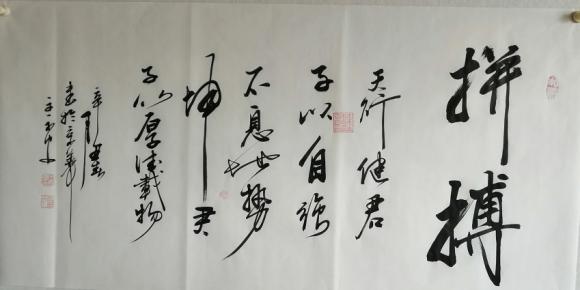 拼搏
天行健君
子以自强
不息地势
坤君
子以厚德载物
辛丑
书于京華